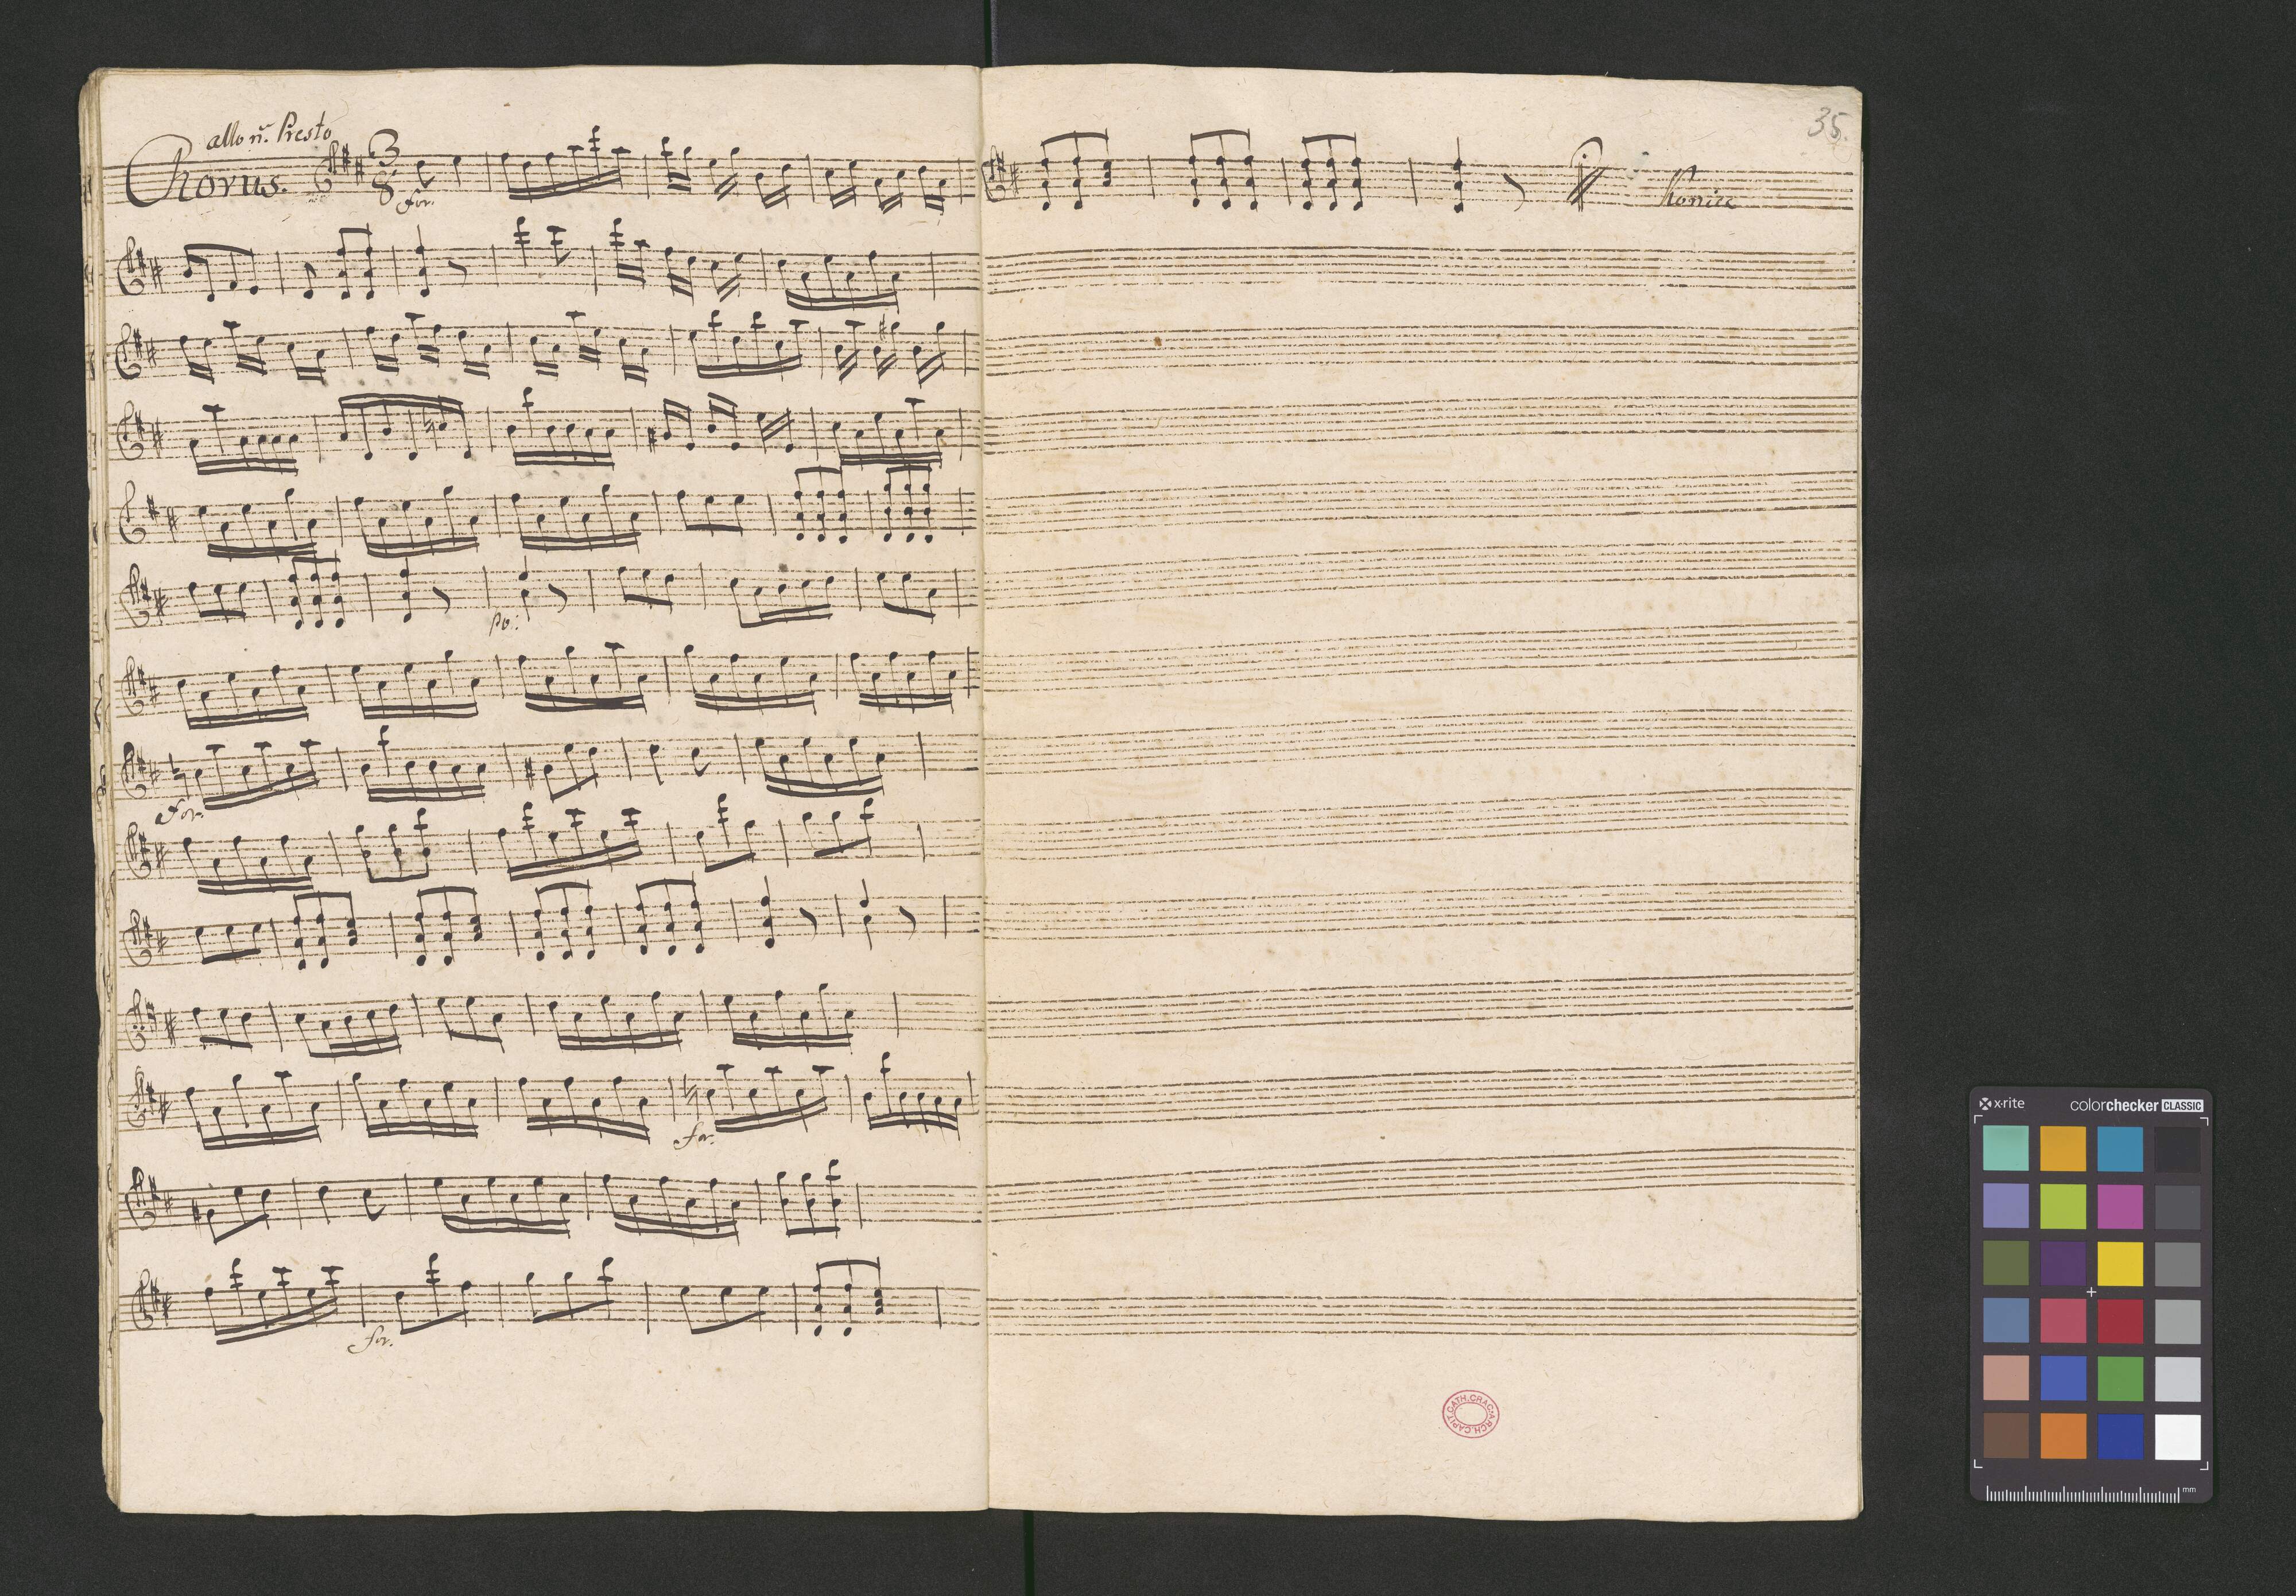 allo ñ. Presto
Chorus.
3
8
for.
po:
For.
for.
for.
35.
Koniec
ARCH. CAPIT. CATH. CRAC.
x-rite
colorchecker CLASSIC
mm